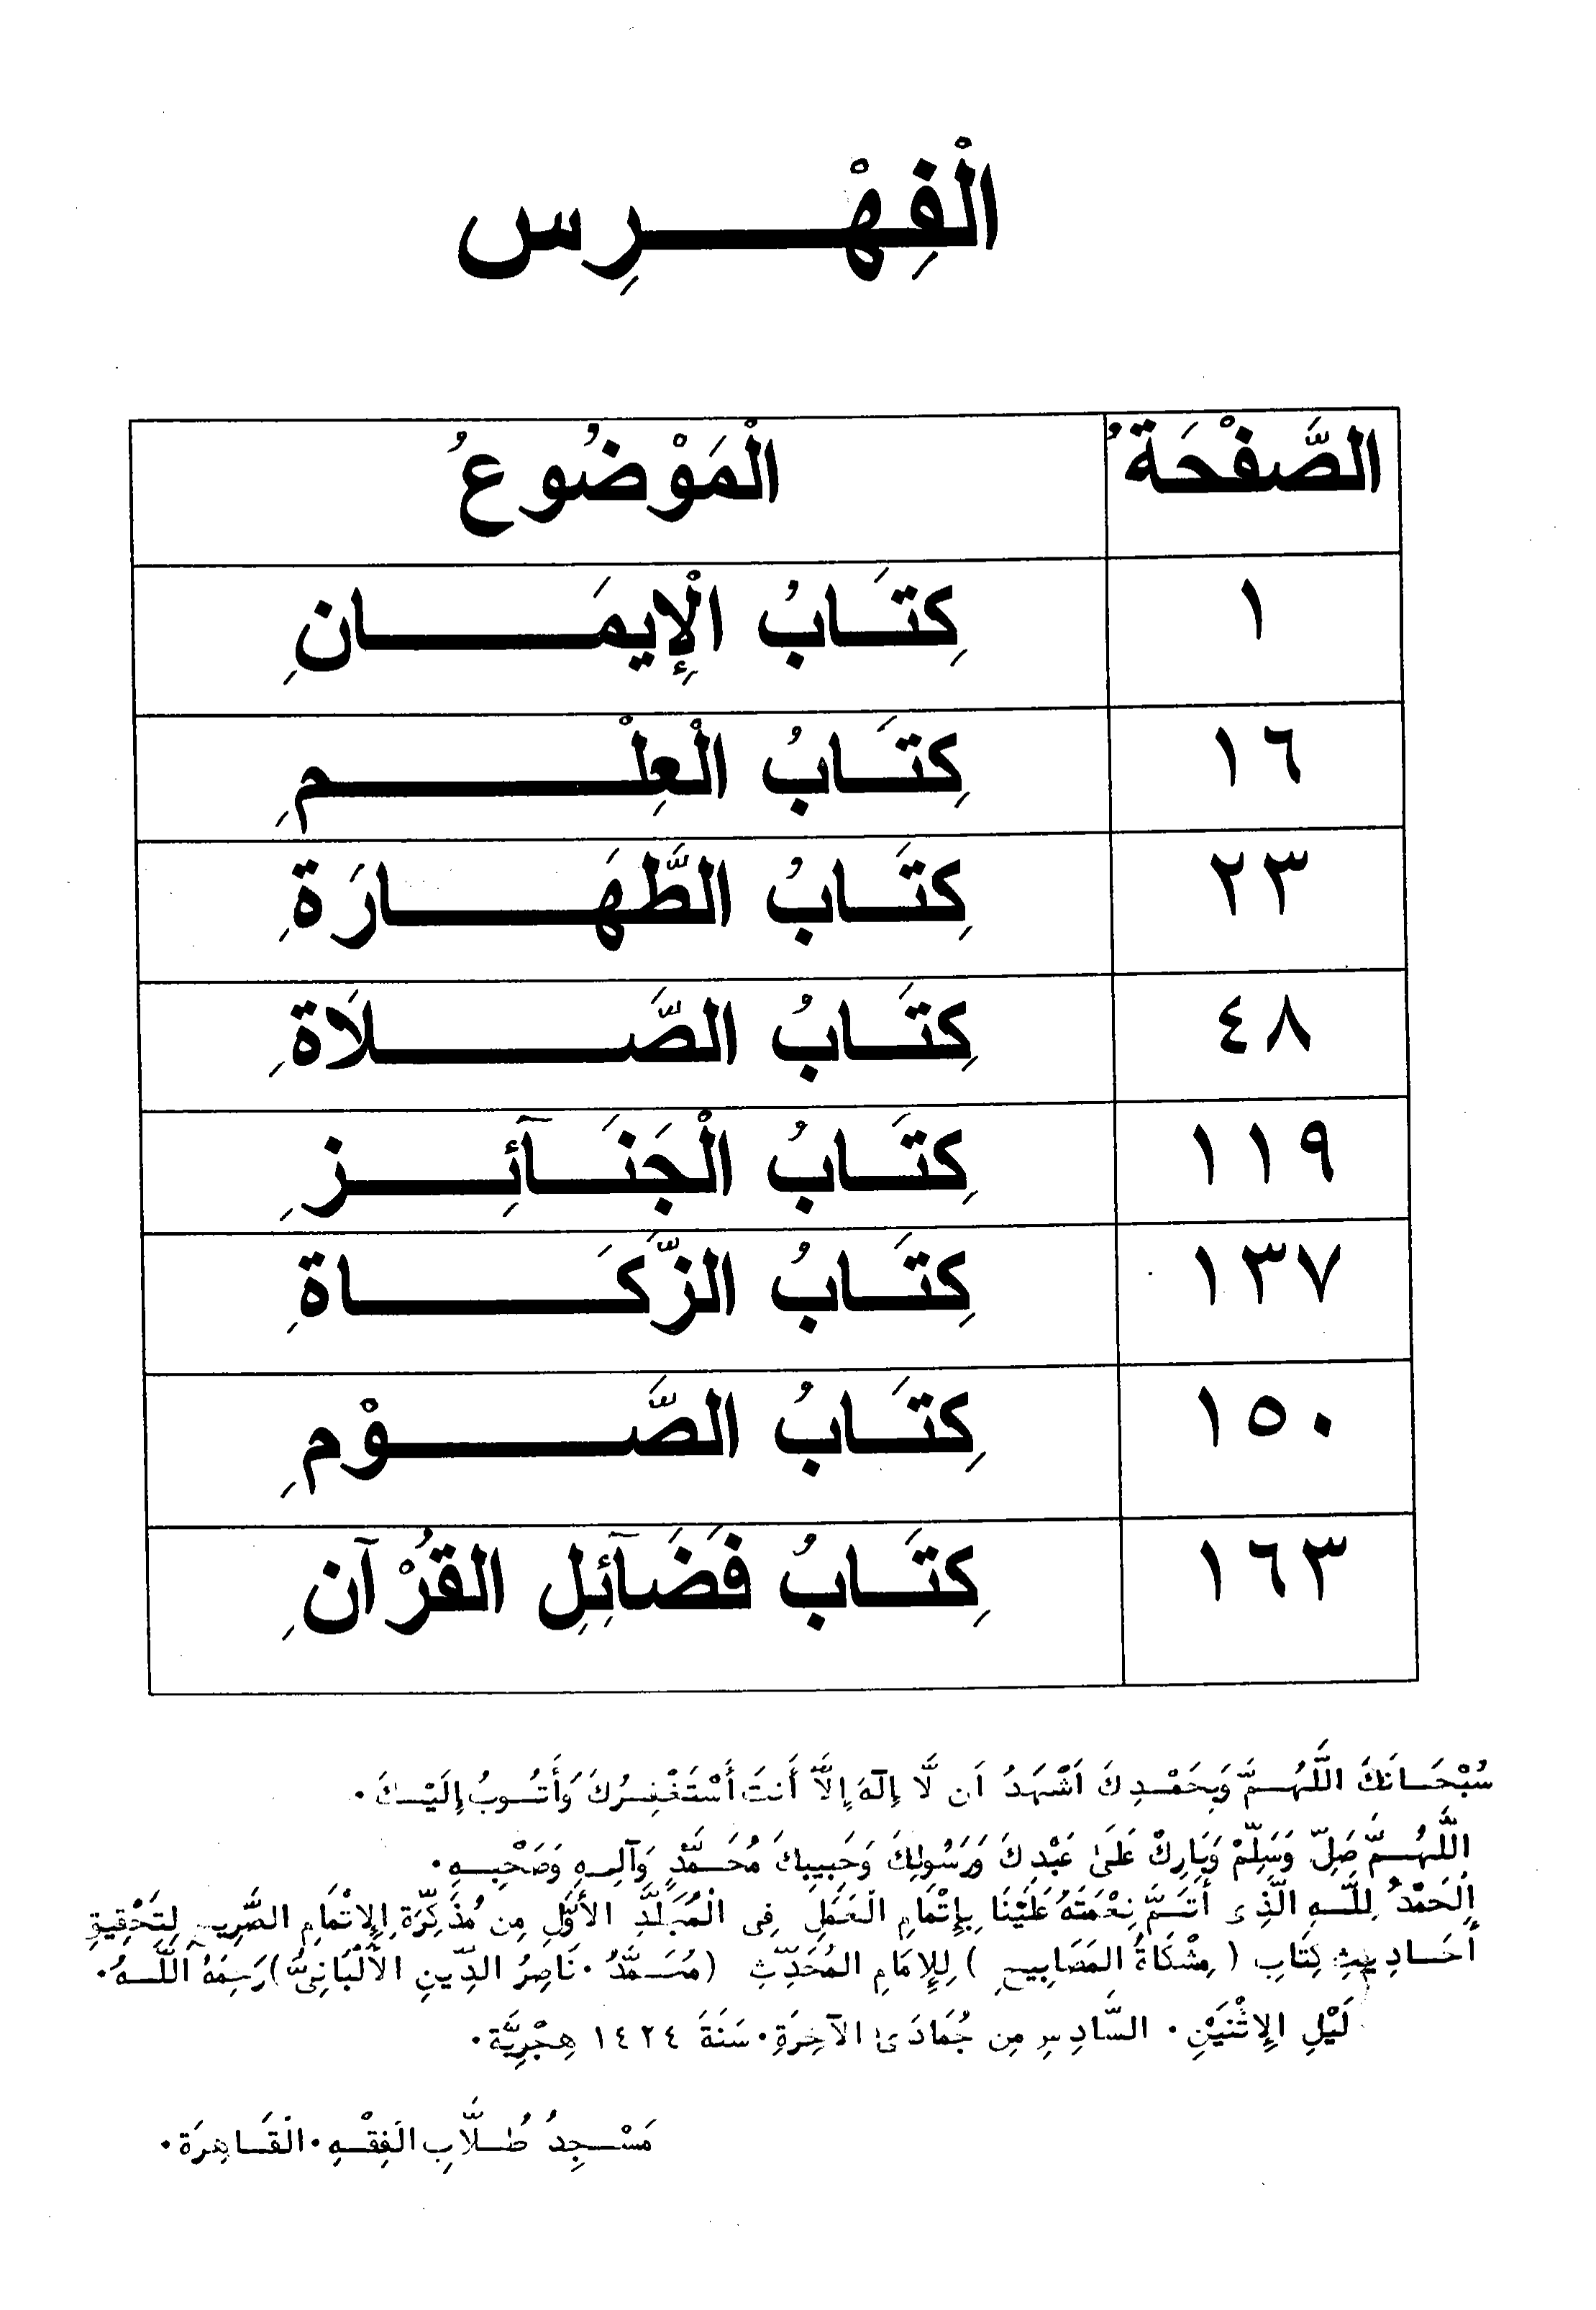 الْفِهْرِس
الصَّفْحَةُ الْمَوْضُوعُ
١ كِتَابُ الْإِيمَانِ
١٦ كِتَابُ الْعِلْمِ
٢٣ كِتَابُ الطَّهَارَةِ
٤٨ كِتَابُ الصَّلَاةِ
١١٩ كِتَابُ الْجَنَآئِزِ
١٣٧ كِتَابُ الزَّكَاةِ
١٥٠ كِتَابُ الصَّوْمِ
١٦٣ كِتَابُ فَضَآئِلِ القُرْآنِ
سُبْحَانَكَ اللَّهُمَّ وَبِحَمْدِكَ اَشْهَدُ اَن لَّا إِلَهَ إِلَّا أَنتَ أَسْتَغْفِرُكَ وَأَتُوبُ إِلَيْكَ.
اللَّهُمَّ صَلِّ وَسَلِّمْ وَبَارِكْ عَلَىٰ عَبْدِكَ وَرَسُولِكَ وَحَبِيبِكَ مُحَمَّدٍ وَآلِهِ وَصَحْبِهِ.
الْحَمْدُ لِلَّهِ الَّذِى أَتَمَّ نِعْمَتَهُ عَلَيْنَا بِإِتْمَامِ الْعَمَلِ فِى الْمُجَلَّدِ الأَوَّلِ مِن مُذَكِّرَةِ الإِتْمَامِ الصَّرِيحِ لِتَحْقِيقِ
أَحَادِيثِ كِتَابِ (مِشْكَاةُ المَصَابِيحِ) لِلإِمَامِ المُحَدِّثِ (مُحَمَّدُ. نَاصِرُ الدِّينِ الأَلْبَانِىُّ) رَحِمَهُ اللَّهُ.
لَيْلِ الإِثْنَيْنِ. السَّادِسِ مِن جُمَادَىٰ الآخِرَةِ. سَنَةَ ١٤٢٤ هِجْرِيَّة.
مَسْجِدُ طُلَّابِ الفِقْهِ. الْقَاهِرَة.